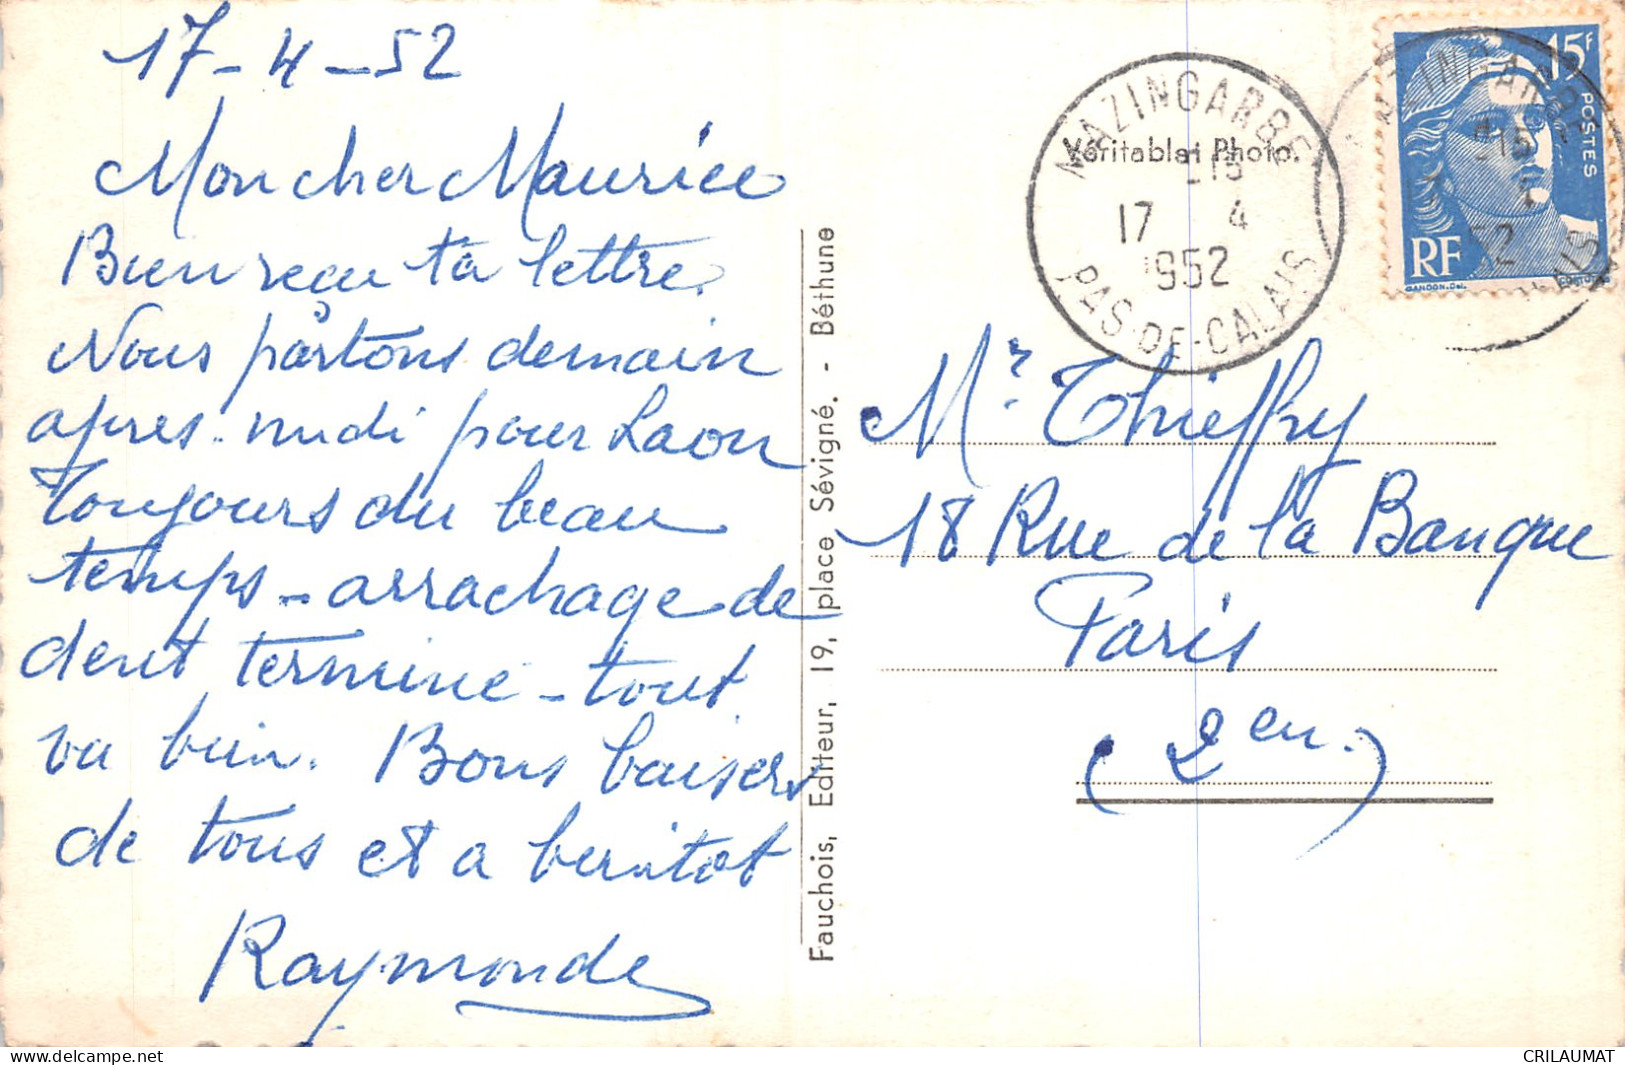 17-4-52
Mon cher Maurice
Bien reçu ta lettre.
Nous partons demain
apres-midi pour Laon
Toujours du beau
temps - arrachage de
dent terminé - tout
va bien. Bons baisers
de tous et a bientot
Raymonde
Fauchois, Editeur, 19, place Sévigné. - Béthune
Véritable Photo.
MAZINGARBE
17 4
1952
PAS-DE-CALAIS
15F
POSTES
RF
GANDON.Del.
Mr. Thieffry
18 Rue de la Banque
Paris
(2en.)
https://www.delcampe.net
CRILAUMAT